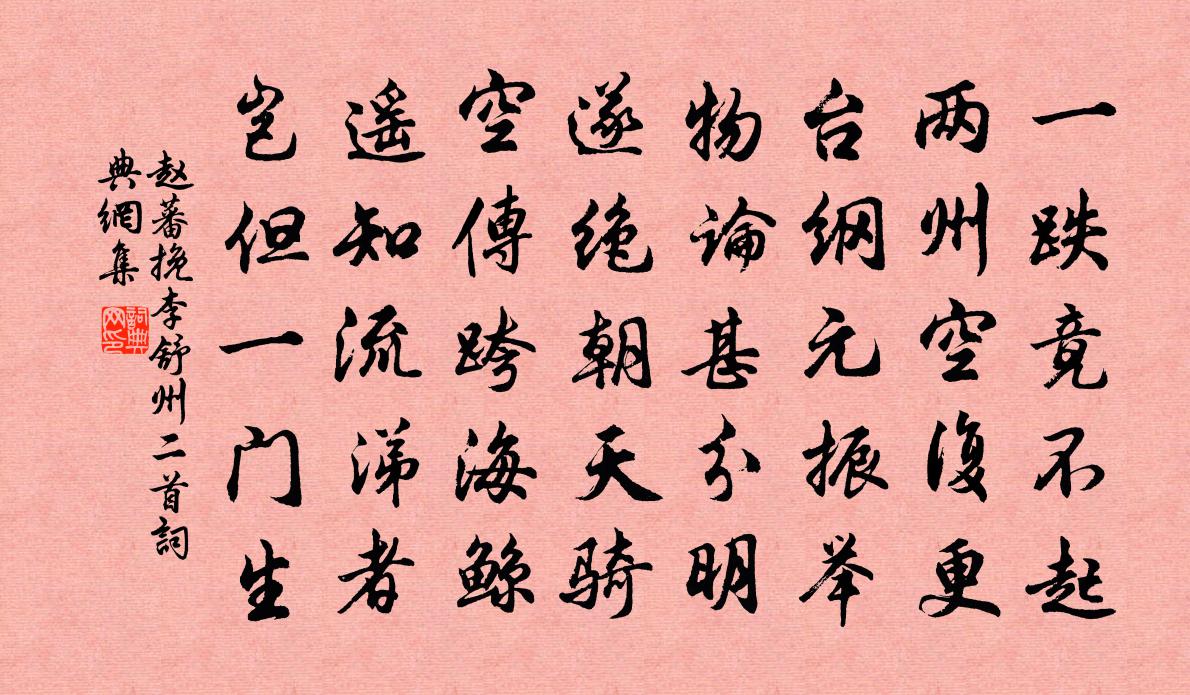 一跌竟不起
两州空復更
台纲元振举
物論甚分明
遂绝朝天骑
空傳跨海鲸
遥知流涕者
岂但一门生
赵蕃挽李舒州二首詞
典網集
詞典
网印